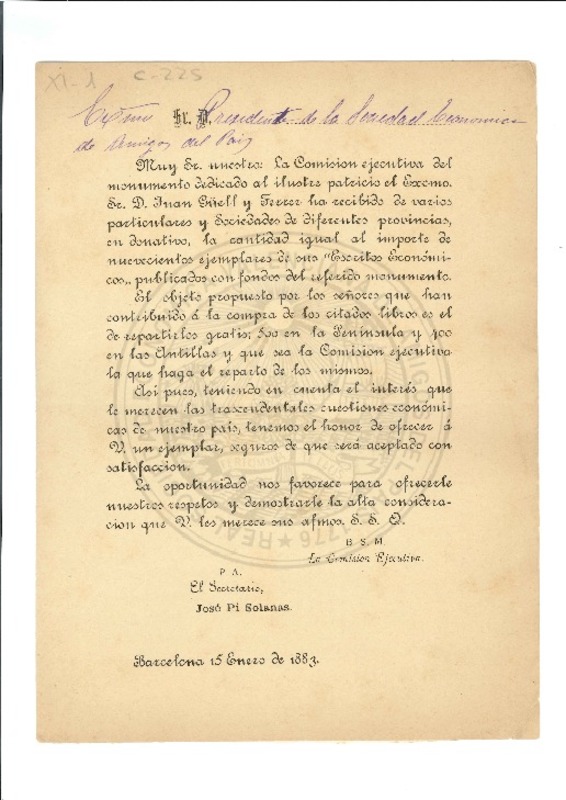 XI-1 C-225
Exćmo Sr. D. Presidente de la Sociedad Economica
de Amigos del Pais
Muy Sr. nuestro: La Comision ejecutiva del
monumento dedicado al ilustre patricio el Excmo.
Sr. D. Juan Güell y Ferrer ha recibido de varios
particulares y Sociedades de diferentes provincias,
en donativo, la cantidad igual al importe de
nuevecientos ejemplares de sus "Escritos Económi-
cos,, publicados con fondos del referido monumento.
El objeto propuesto por los señores que han
contribuido á la compra de los citados libros es el
de repartirlos gratis; 500 en la Península y 400
en las Antillas y que sea la Comision ejecutiva
la que haga el reparto de los mismos.
Asi pues, teniendo en cuenta el interés que
le merecen las trascendentales cuestiones económi-
cas de nuestro país, tenemos el honor de ofrecer á
V. un ejemplar, seguros de que será aceptado con
satisfaccion.
La oportunidad nos favorece para ofrecerle
nuestros respetos y demostrarle la alta considera-
cion que V. les merece sus afmos. S. S. Q.
B. S. M.
La Comision Ejecutiva.
P. A.
El Secretario,
José Pi Solanas.
Barcelona 15 Enero de 1883.